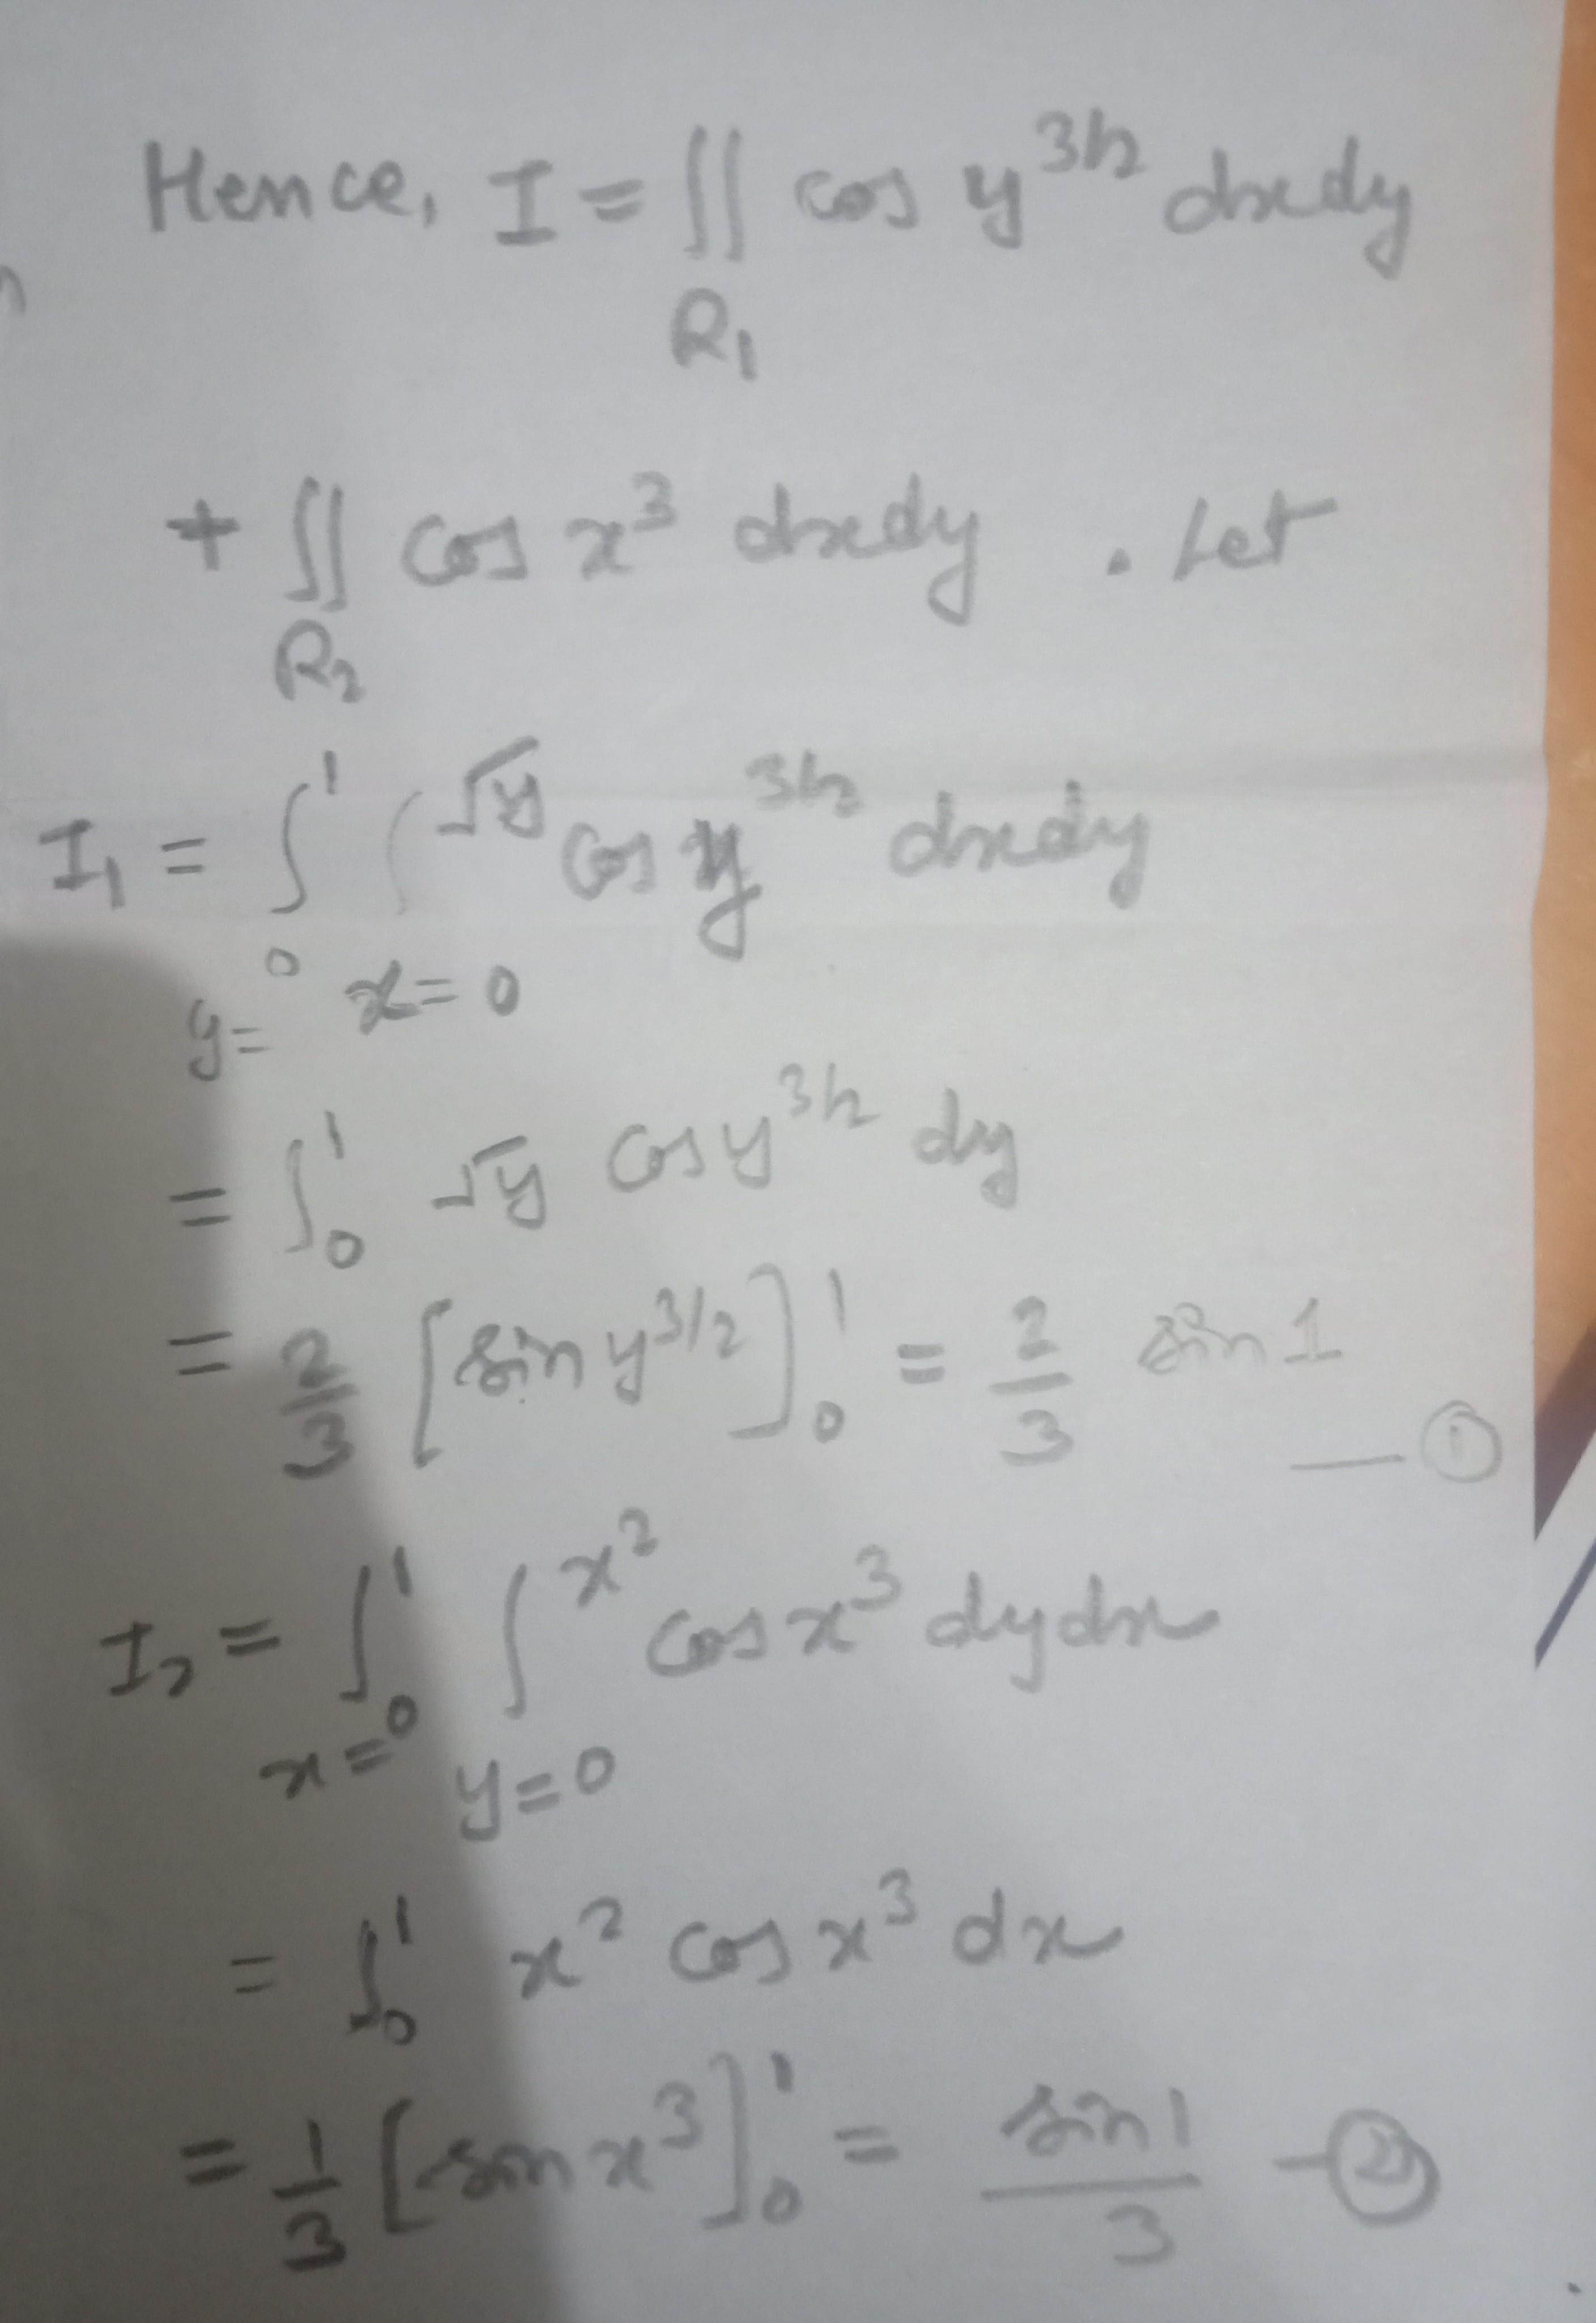 Hence, I = ∬ cos y^3/2 dxdy
R₁
+ ∬ cos x³ dxdy . Let
R₂
I₁ = ∫ ∫^√y cos y^3/2 dxdy
y=0 x=0
= ∫₀¹ √y cos y^3/2 dy
= 2/3 [sin y^3/2]₀¹ = 2/3 sin 1
— ①
I₂ = ∫₀¹ ∫^x² cos x³ dydx
x=0 y=0
= ∫₀¹ x² cos x³ dx
= 1/3 [sin x³]₀¹ = sin 1/3 – ②